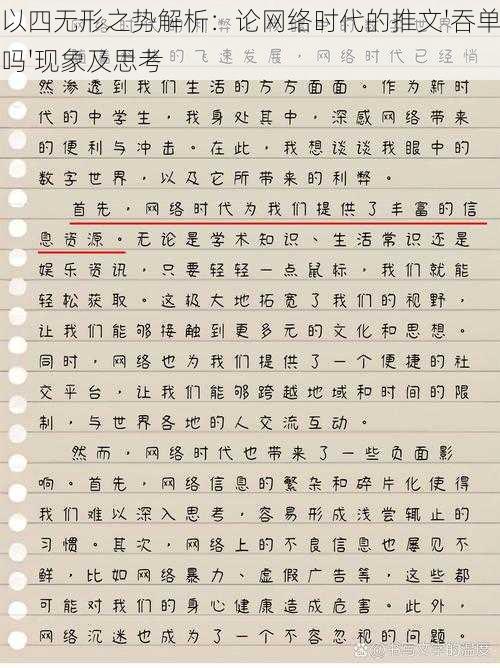 以四无形之势解析：论网络时代的推文'吞单
吗'现象及思考
的飞速发展，网络时代已经悄
然渗透到我们生活的方方面面。作为新时
代的中学生，我身处其中，深感网络带来
的便利与冲击。在此，我想谈谈我眼中的
数字世界，以及它所带来的利弊。
首先，网络时代为我们提供了丰富的信
息资源。无论是学术知识、生活常识还是
娱乐资讯，只要轻轻一点鼠标，我们就能
轻松获取。这极大地拓宽了我们的视野，
让我们能够接触到更多元的文化和思想。
同时，网络也为我们提供了一个便捷的社
交平台，让我们能够跨越地域和时间的限
制，与世界各地的人交流互动。
然而，网络时代也带来了一些负面影
响。首先，网络信息的繁杂和碎片化使得
我们难以深入思考，容易形成浅尝辄止的
习惯。其次，网络上的不良信息也屡见不
鲜，比如网络暴力、虚假广告等，这些都
可能对我们的身心健康造成危害。此外，
网络沉迷也成为了一个不容忽视的问题。
书写文字的温度